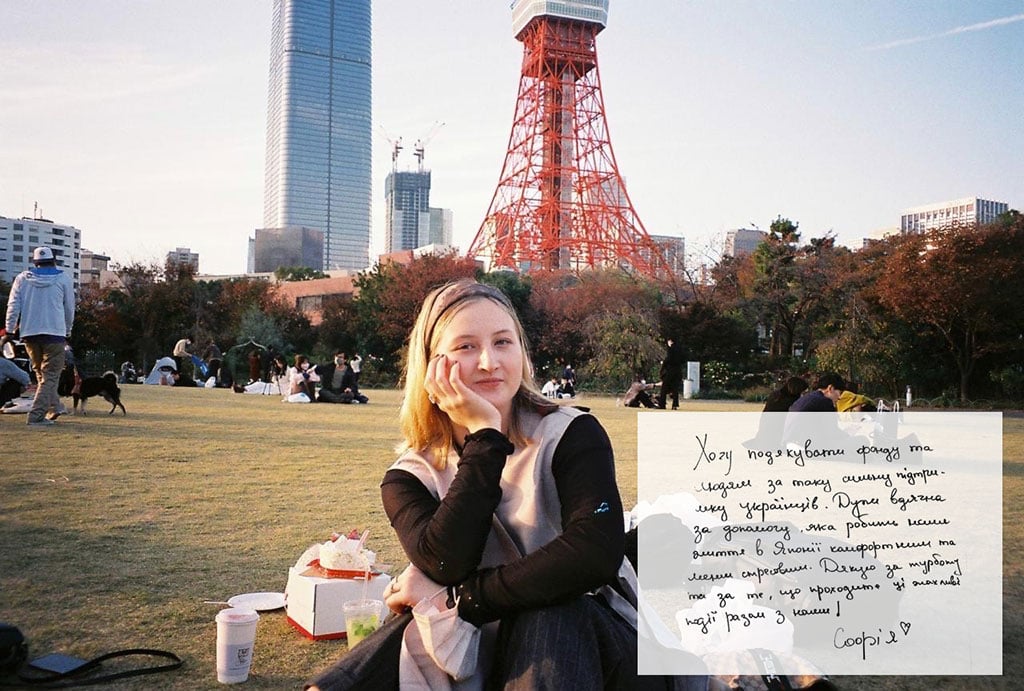 Хочу подякувати фонду та
людям за таку сильну підтри-
мку українців. Дуже вдячна
за допомогу, яка робить наше
життя в Японії комфортним та
менш стресовим. Дякую за турботу
та за те, що проходите ці жахливі
події разом з нами!
Софія